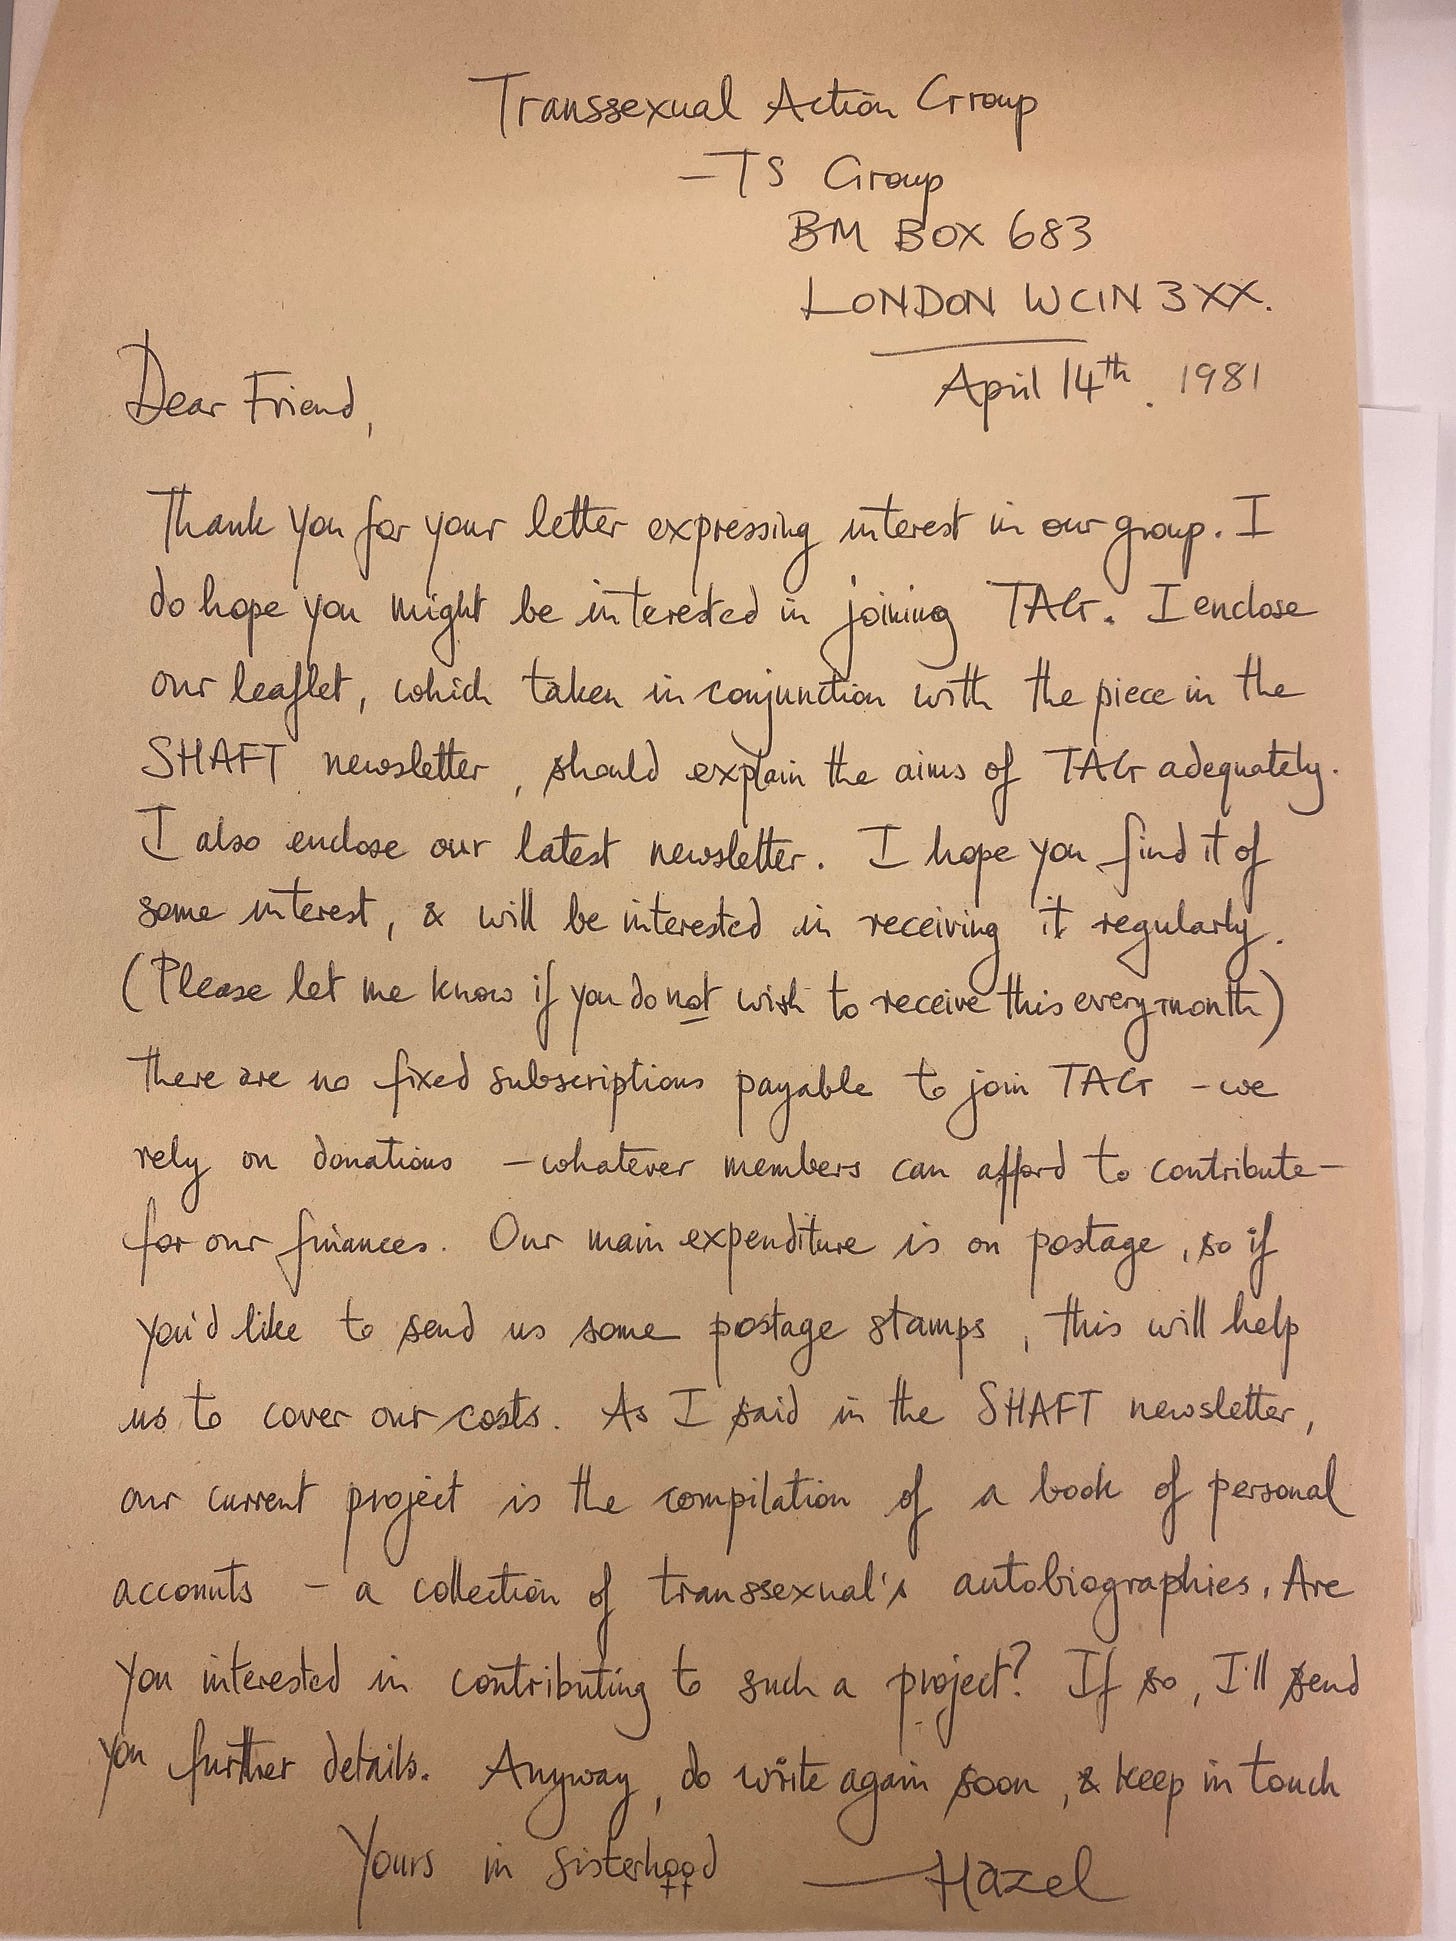 Transsexual Action Group
– TS Group
BM BOX 683
LONDON WC1N 3XX.
April 14th. 1981
Dear Friend,
Thank you for your letter expressing interest in our group. I
do hope you might be interested in joining TAG. I enclose
our leaflet, which taken in conjunction with the piece in the
SHAFT newsletter, should explain the aims of TAG adequately.
I also enclose our latest newsletter. I hope you find it of
some interest, & will be interested in receiving it regularly.
(Please let me know if you do not wish to receive this every month)
There are no fixed subscriptions payable to join TAG – we
rely on donations – whatever members can afford to contribute –
for our finances. Our main expenditure is on postage, so if
you'd like to send us some postage stamps, this will help
us to cover our costs. As I said in the SHAFT newsletter,
our current project is the compilation of a book of personal
accounts – a collection of transsexual's autobiographies. Are
you interested in contributing to such a project? If so, I'll send
you further details. Anyway, do write again soon, & keep in touch
Yours in sisterhood — Hazel